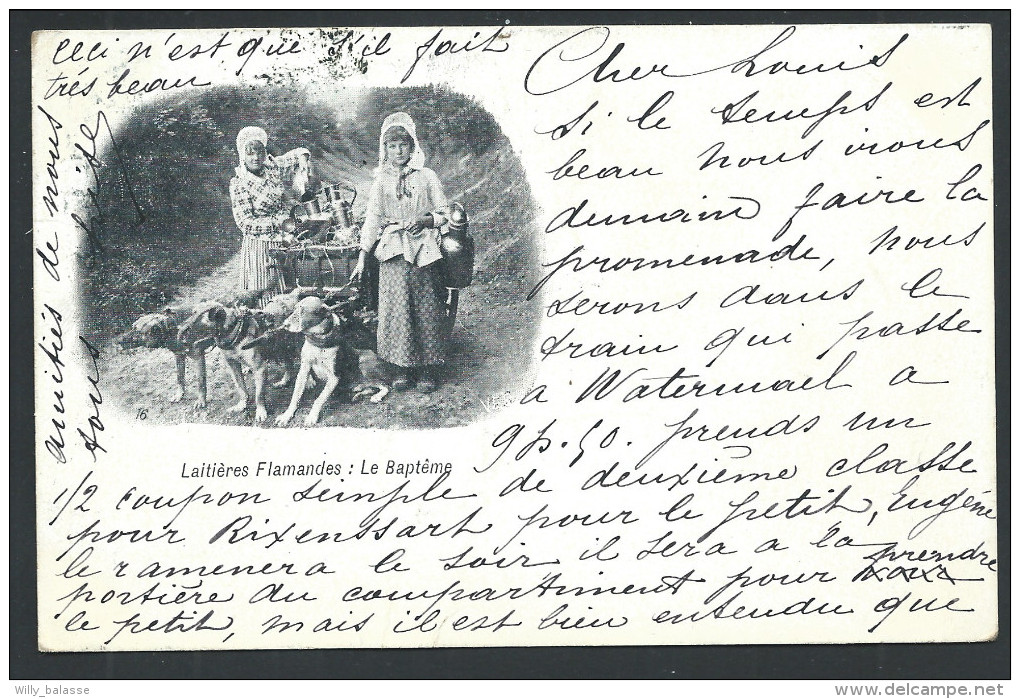 Cher Louis
si le temps est
beau nous irons
demain faire la
promenade, nous
serons dans le
train qui passe
à Watermael a
9 h. 50. prends un
1/2 coupon simple de deuxième classe
pour Rixenssart pour le petit, Eugéne
le ramenera le soir il sera a la
portière du compartiment pour prendre
le petit, mais il est bien entendu que
ceci n'est que s'il fait
trés beau
amitiés de nous
tous
16
Laitières Flamandes : Le Baptême
Willy_balasse
delcampe.net